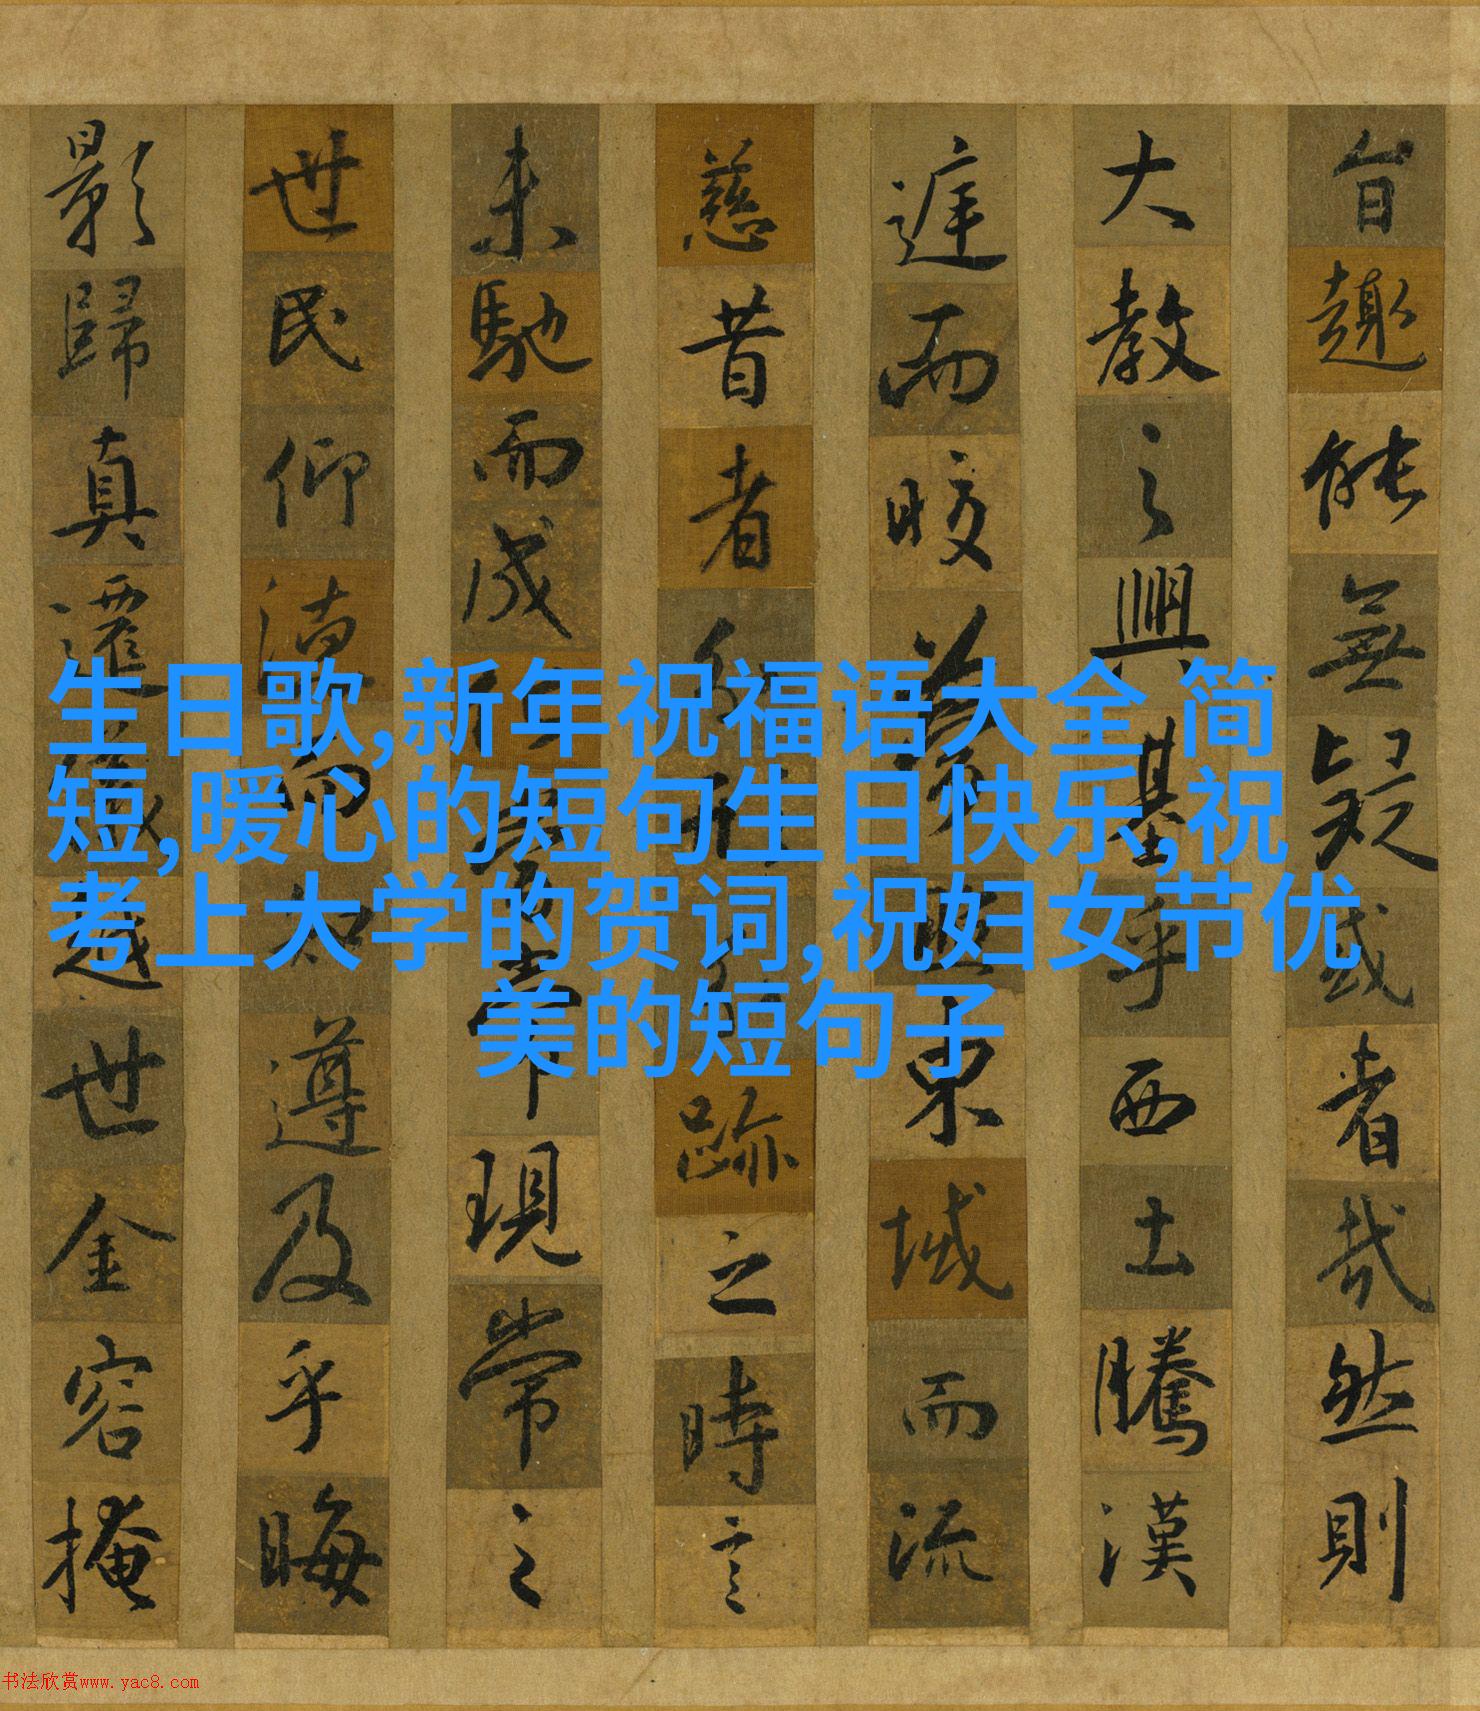 旨趣能無疑或者哉然則
大教之興基乎西土騰漢
庭而皎夢照東域而流
慈昔者分形跡之時言
未馳而成當常現常之
世民仰德而知遵及乎晦
影歸真遷儀越世金容掩
生日歌,新年祝福语大全 简
短,暖心的短句生日快乐,祝
考上大学的贺词,祝妇女节优
美的短句子
书法欣赏www.yac8.com